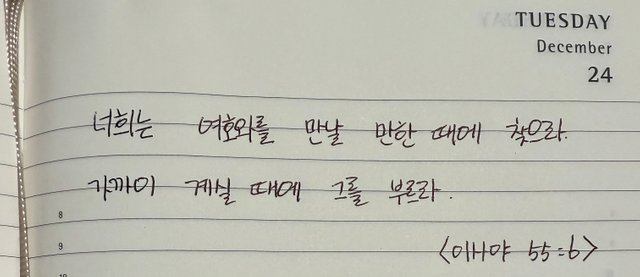 TUESDAY
December
24
너희는 여호와를 만날 만한 때에 찾으라.
가까이 계실 때에 그를 부르라.
8
9
<이사야 55:6>